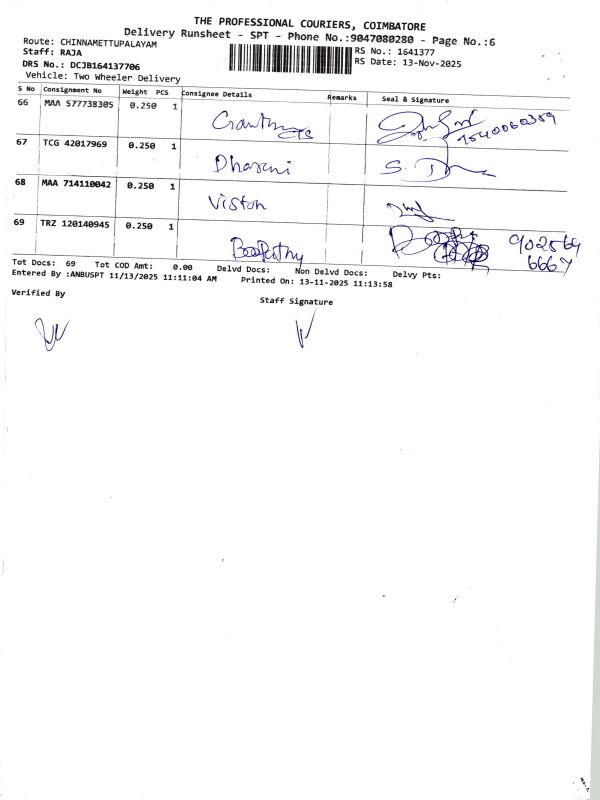 THE PROFESSIONAL COURIERS, COIMBATORE
Delivery Runsheet - SPT - Phone No.:9047080280 - Page No.:6
Route: CHINNAMETTUPALAYAM
Staff: RAJA RS No.: 1641377
DRS No.: DCJB164137706 RS Date: 13-Nov-2025
Vehicle: Two Wheeler Delivery
S No Consignment No Weight PCS Consignee Details Remarks Seal & Signature
66 MAA 577738305 0.250 1
67 TCG 42017969 0.250 1 Dharani
68 MAA 714110042 0.250 1 Viston
69 TRZ 120140945 0.250 1 Boopathy 902569
6667
Tot Docs: 69 Tot COD Amt: 0.00 Delvd Docs: Non Delvd Docs: Delvy Pts:
Entered By :ANBUSPT 11/13/2025 11:11:04 AM Printed On: 13-11-2025 11:13:58
Verified By Staff Signature